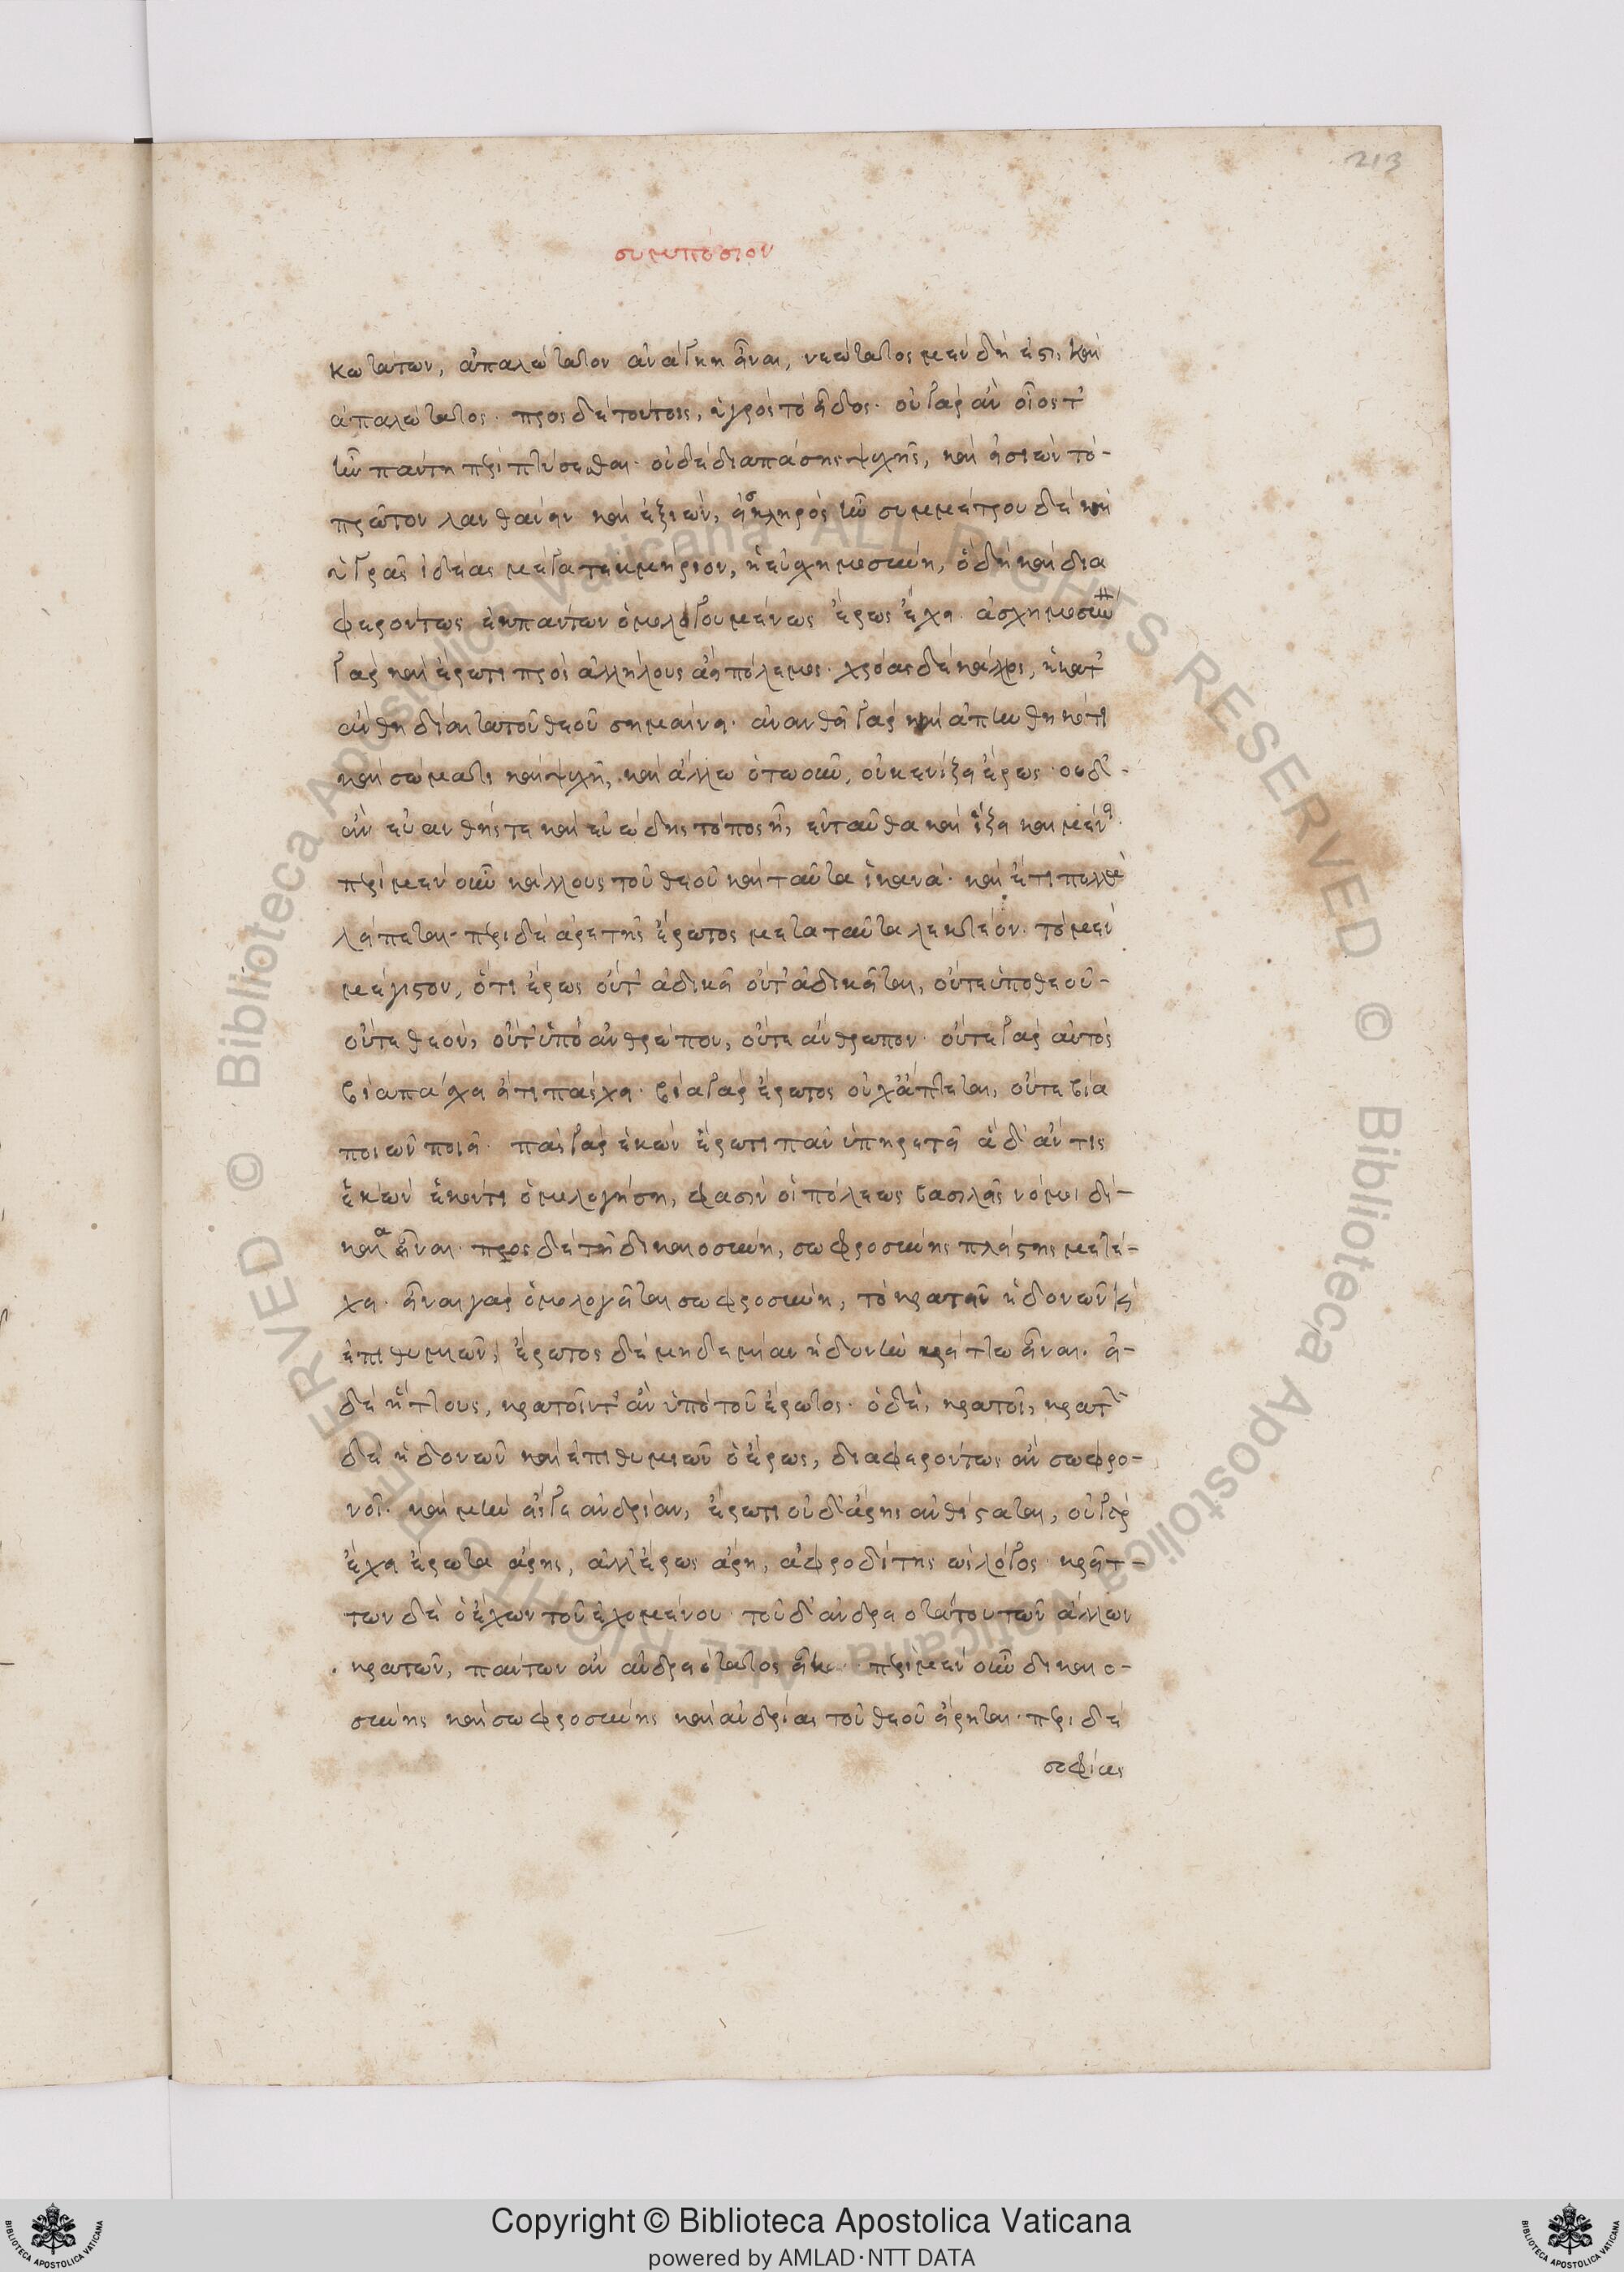 213
συμπόσιον
κωτάτων, ἁπαλώτατον ἀνάγκη εἶναι, νεώτατος μὲν δή ἐστι καὶ
ἁπαλώτατος. πρὸς δὲ τούτοις, ὑγρὸς τὸ εἶδος. οὐ γὰρ ἂν οἷος τ'
ἦν πάντη περιπτύσεσθαι. οὐδὲ διὰ πάσης ψυχῆς, καὶ εἰσιὼν τὸ-
πρῶτον λανθάνειν καὶ ἐξιών, εἰ σκληρὸς ἦν συμμέτρου δὲ καὶ
ὑγρᾶς ἰδέας μέγα τεκμήριον, ἡ εὐσχημοσύνη, ὃ δὴ καὶ δια
φερόντως ἐκ πάντων ὁμολογουμένως ἔρως ἔχει. ἀσχημοσύνη
γὰρ καὶ ἔρωτι πρὸς ἀλλήλους ἀεὶ πόλεμος. χρόας δὲ κάλλος, ἡ κατ'
ἄνθη δίαιτα τοῦ θεοῦ σημαίνει. ἀνανθεῖ γὰρ καὶ ἀπηνθηκότι
καὶ σώματι καὶ ψυχῇ, καὶ ἄλλω ὁτωοῦν, οὐκ ἐνίζει ἔρως. οὗ δ'-
ἂν εὐανθής τε καὶ εὐώδης τόπος ᾖ, ἐνταῦθα καὶ ἵζει καὶ μένει.
περὶ μὲν οὖν κάλλους τοῦ θεοῦ καὶ ταῦτα ἱκανά. καὶ ἔτι πολλὰ
λείπεται. περὶ δὲ ἀρετῆς ἔρωτος μετὰ ταῦτα λεκτέον. τὸ μὲν
μέγιστον, ὅτι ἔρως οὔτ' ἀδικεῖ οὔτ' ἀδικεῖται, οὔτε ὑπὸ θεοῦ-
οὔτε θεόν, οὔτ' ὑπὸ ἀνθρώπου, οὔτε ἄνθρωπον. οὔτε γὰρ αὐτὸς
βία πάσχει εἴ τι πάσχει. βία γὰρ ἔρωτος οὐχ ἅπτεται, οὔτε βία
ποιῶν ποιεῖ. πᾶς γὰρ ἑκὼν ἔρωτι πᾶν ὑπηρετεῖ ἃ δ' ἄν τις
ἑκὼν ἑκόντι ὁμολογήση, φασὶν οἱ πόλεως βασιλεῖς νόμοι δί-
καια εἶναι. πρὸς δὲ τῆ δικαιοσύνη, σωφροσύνης πλείστης μετέ-
χει. εἶναι γὰρ ὁμολογεῖται σωφροσύνη, τὸ κρατεῖν ἡδονῶν καὶ
ἐπιθυμιῶν, ἔρωτος δὲ μηδεμίαν ἡδονὴν κρείττω εἶναι. εἰ-
δὲ ἥττους, κρατοῖντ' ἂν ὑπὸ τοῦ ἔρωτος. ὁ δὲ, κρατοῖ, κρατῶν
δὲ ἡδονῶν καὶ ἐπιθυμιῶν ὁ ἔρως, διαφερόντως ἂν σωφρο-
νοῖ. καὶ μὴν εἴς γε ἀνδρίαν, ἔρωτι οὐδ' ἄρης ἀνθίσταται, οὐ γὰρ
ἔχει ἔρωτα ἄρης, ἀλλ' ἔρως ἄρη, ἀφροδίτης ὡς λόγος. κρείτ-
των δὲ ὁ ἔχων τοῦ ἐχομένου. τοῦ δ' ἀνδρειοτάτου τῶν ἄλλων
κρατῶν, πάντων ἂν ἀνδρειότατος εἴη. περὶ μὲν οὖν δικαιο-
σύνης καὶ σωφροσύνης καὶ ἀνδρίας τοῦ θεοῦ εἴρηται. περὶ δὲ
σοφίας
Copyright © Biblioteca Apostolica Vaticana
powered by AMLAD·NTT DATA